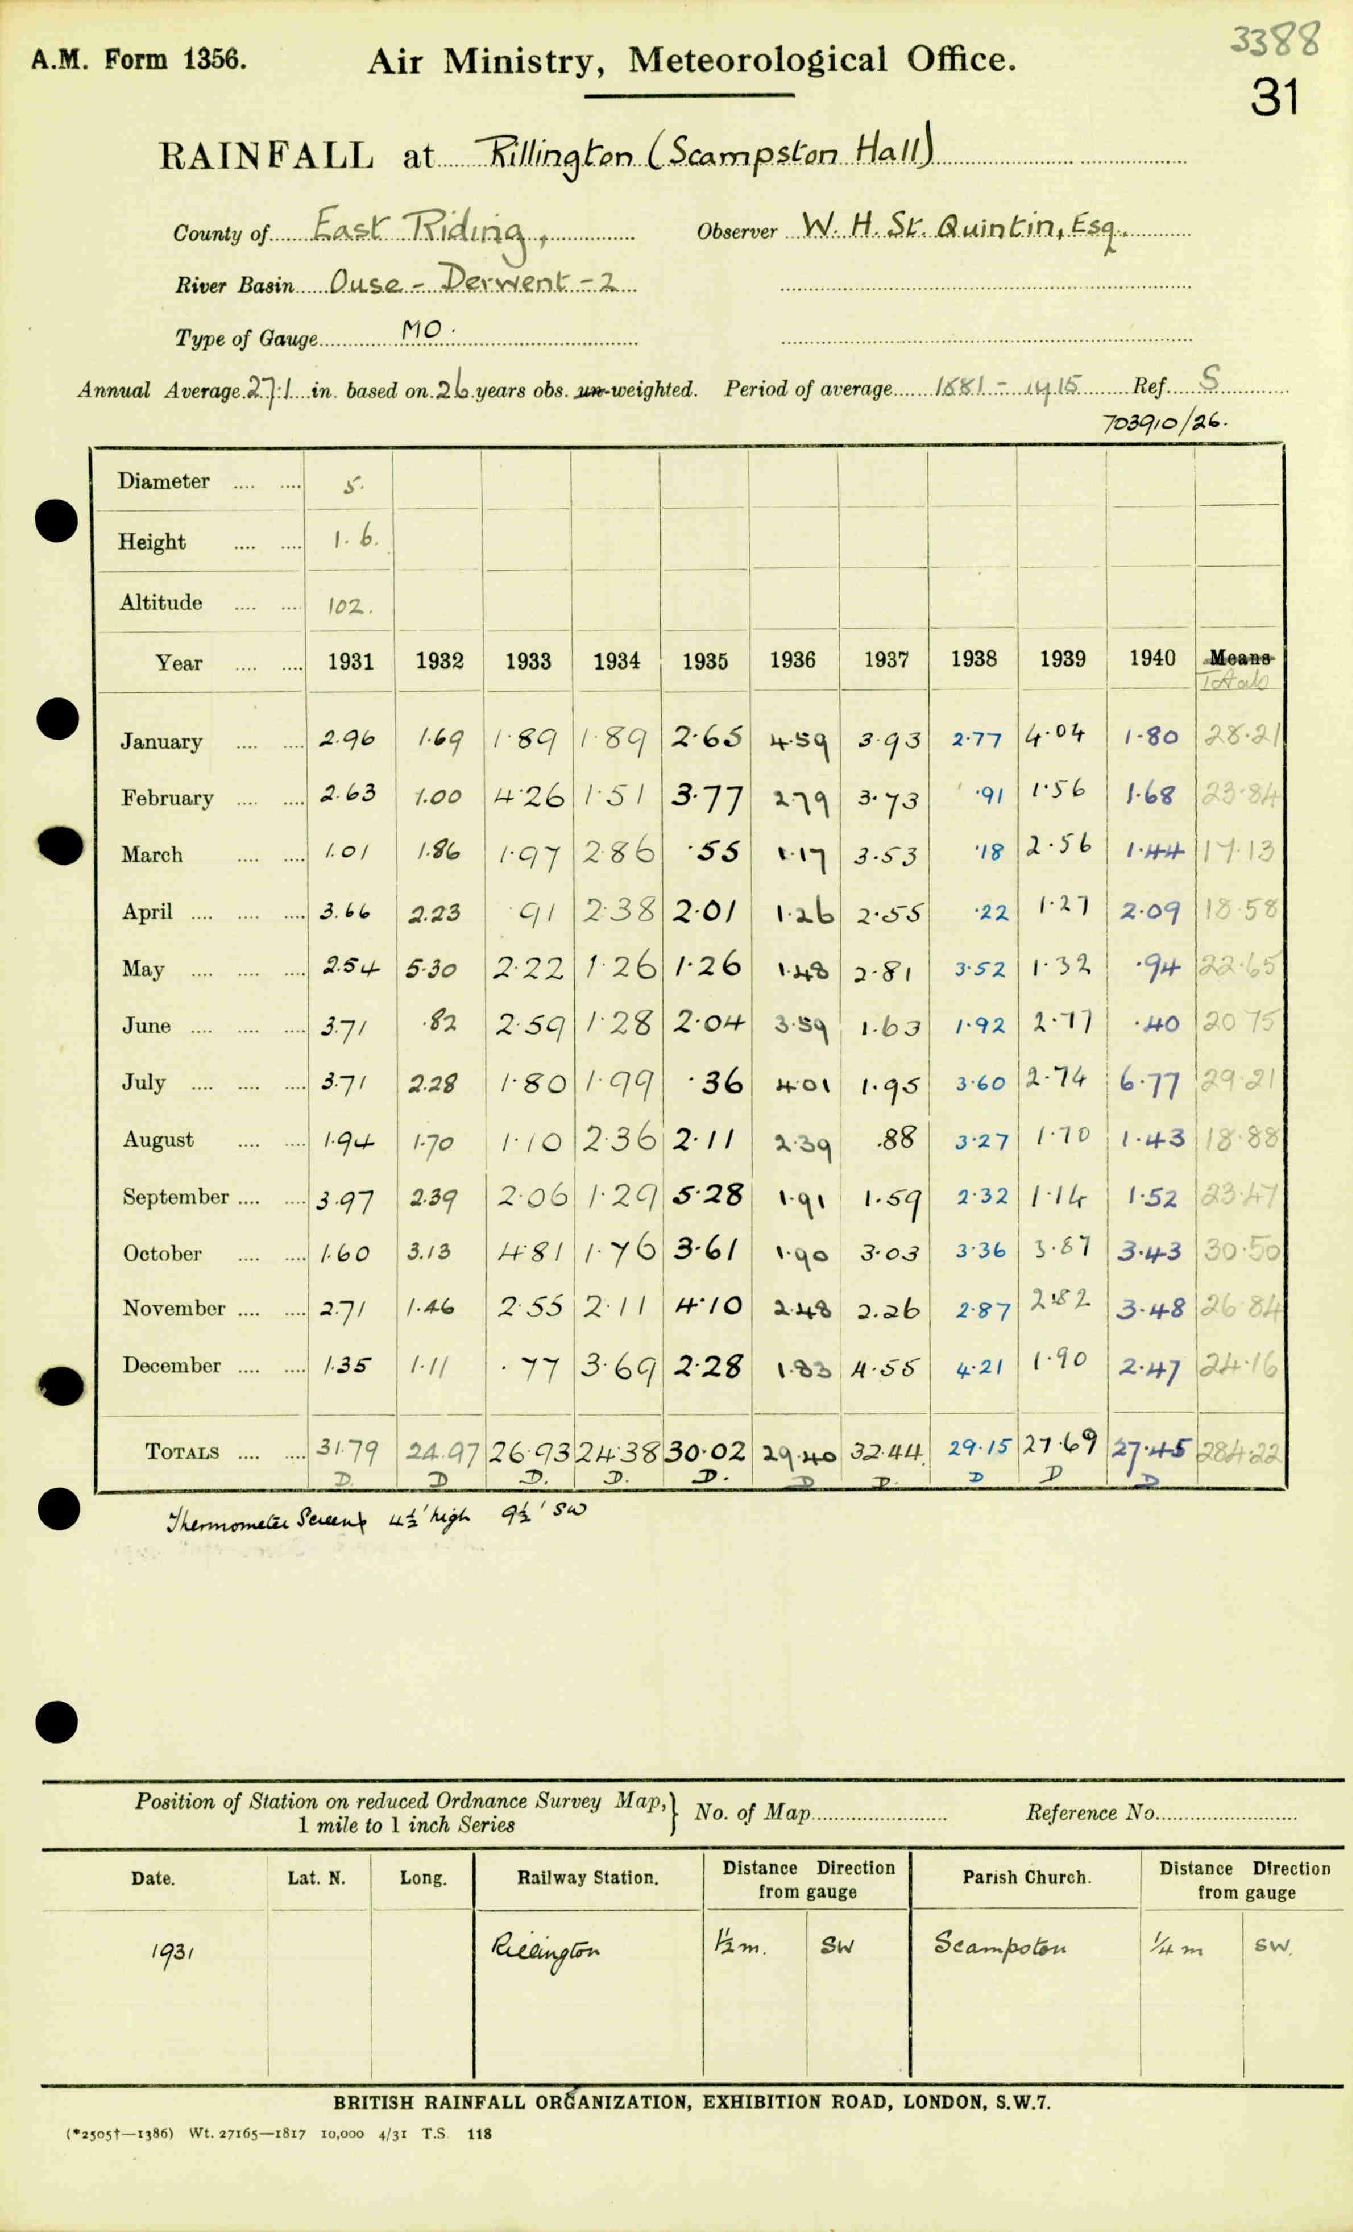 3388
A.M. Form 1356. Air Ministry, Meteorological Office.
31
RAINFALL at Rillington (Scampston Hall)
County of East Riding, Observer W. H. St. Quintin, Esq.
River Basin Ouse - Derwent - 2
Type of Gauge MO.
Annual Average 27.1 in. based on 26 years obs. un-weighted. Period of average 1881 - 1915 Ref. S
703910/26.
Diameter .... .... 5.
Height .... .... 1. 6.
Altitude .... .... 102.
Year .... .... 1931 1932 1933 1934 1935 1936 1937 1938 1939 1940 Means
Totals
January .... .... 2.96 1.69 1.89 1.89 2.65 4.59 3.93 2.77 4.04 1.80 28.21
February .... .... 2.63 1.00 4.26 1.51 3.77 2.79 3.73 .91 1.56 1.68 23.84
March .... .... 1.01 1.86 1.97 2.86 .55 1.17 3.53 .18 2.56 1.44 17.13
April .... .... .... 3.66 2.23 .91 2.38 2.01 1.26 2.55 .22 1.27 2.09 18.58
May .... .... .... 2.54 5.30 2.22 1.26 1.26 1.48 2.81 3.52 1.32 .94 22.65
June .... .... .... 3.71 .82 2.59 1.28 2.04 3.59 1.63 1.92 2.77 .40 20.75
July .... .... .... 3.71 2.28 1.80 1.99 .36 4.01 1.95 3.60 2.74 6.77 29.21
August .... .... 1.94 1.70 1.10 2.36 2.11 2.39 .88 3.27 1.70 1.43 18.88
September .... .... 3.97 2.39 2.06 1.29 5.28 1.91 1.59 2.32 1.14 1.52 23.47
October .... .... 1.60 3.13 4.81 1.76 3.61 1.90 3.03 3.36 3.87 3.43 30.50
November .... .... 2.71 1.46 2.55 2.11 4.10 2.48 2.26 2.87 2.82 3.48 26.84
December .... .... 1.35 1.11 .77 3.69 2.28 1.83 4.55 4.21 1.90 2.47 24.16
TOTALS .... .... 31.79 24.97 26.93 24.38 30.02 29.40 32.44 29.15 27.69 27.45 284.22
D. D D. D. D. D D. D D D
Thermometer Screen 4½' high 9½' SW
Position of Station on reduced Ordnance Survey Map, } No. of Map Reference No.
1 mile to 1 inch Series
Date. Lat. N. Long. Railway Station. Distance Direction from gauge Parish Church. Distance Direction from gauge
1931 Rillington 1½ m. SW Scampston ¼ m SW.
BRITISH RAINFALL ORGANIZATION, EXHIBITION ROAD, LONDON, S.W.7.
(*2505†—1386) Wt. 27165—1817 10,000 4/31 T.S. 118